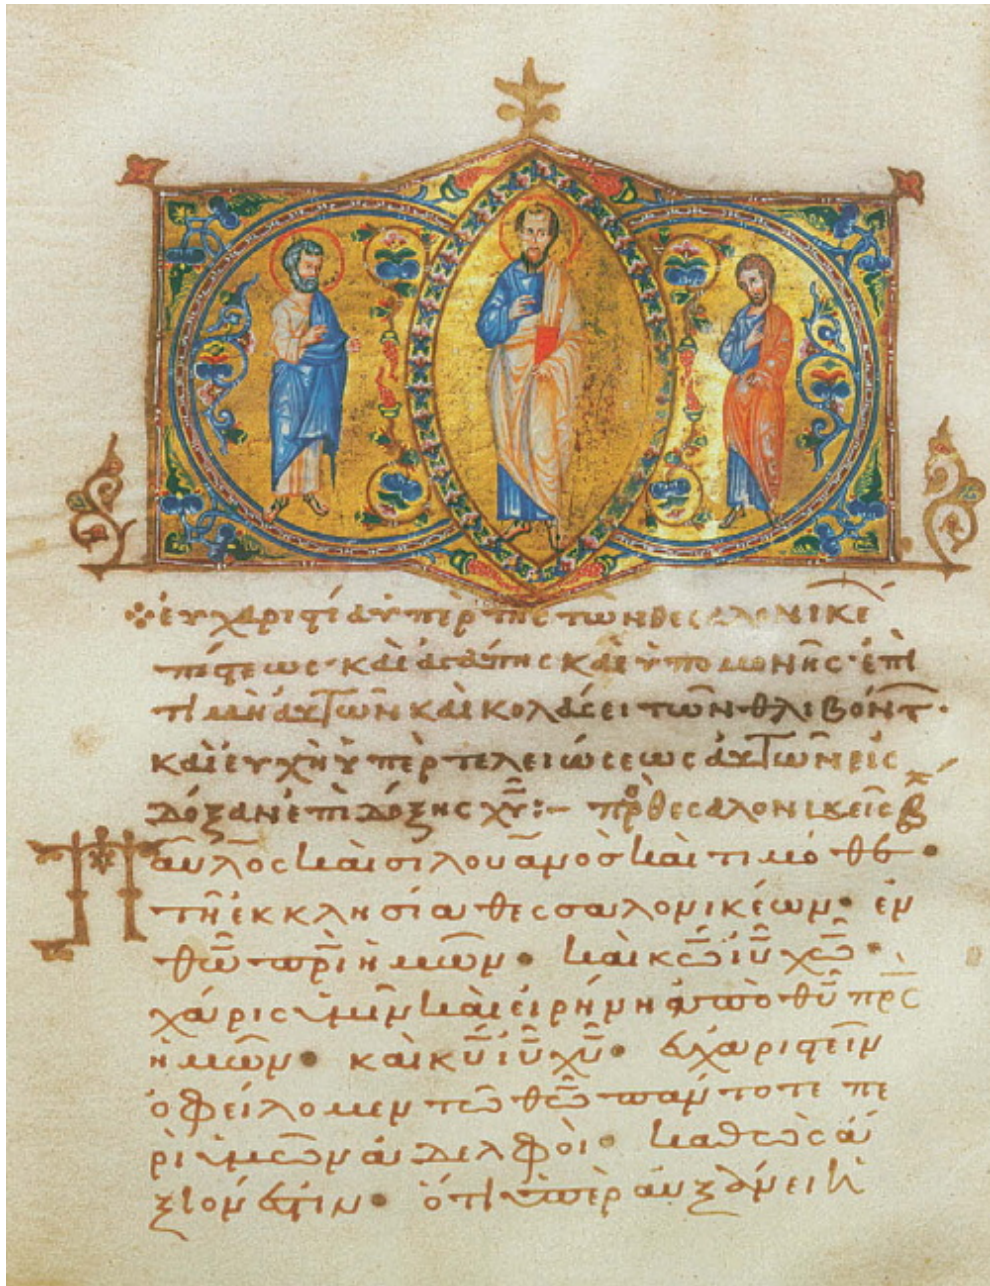 εὐχαριστία ὑπὲρ τῆς τῶν θεσαλονικέ
πίστεως· καὶ ἀγάπης καὶ ὑπομονῆς· ἐπὶ
τιμῆ αὐτῶν καὶ κολάσει τῶν θλιβόντ·
καὶ εὐχὴ ὑπὲρ τελειώσεως αὐτῶν εἰς
δόξαν ἐπὶ δόξης χυ:– πρ θεσαλονικεῖς β
Παῦλος καὶ σιλουανὸσ καὶ τιμόθε
τῆ ἐκκλησία θεσσαλονικέων· ἐν
θω πρι ἡμῶν· καὶ κω ιυ χω·
χάρις ὑμῖν καὶ εἰρήνη ἀπὸ θυ πρς
ἡμῶν· καὶ κυ ιυ χυ· εὐχαριστεῖν
ὀφείλομεν τῶ θεῶ πάντοτε πε
ρὶ ὑμῶν ἀδελφοὶ· καθὼς ἄ
ξιόν ἐστιν· ὅτι ὑπεραυξάνει ἡ